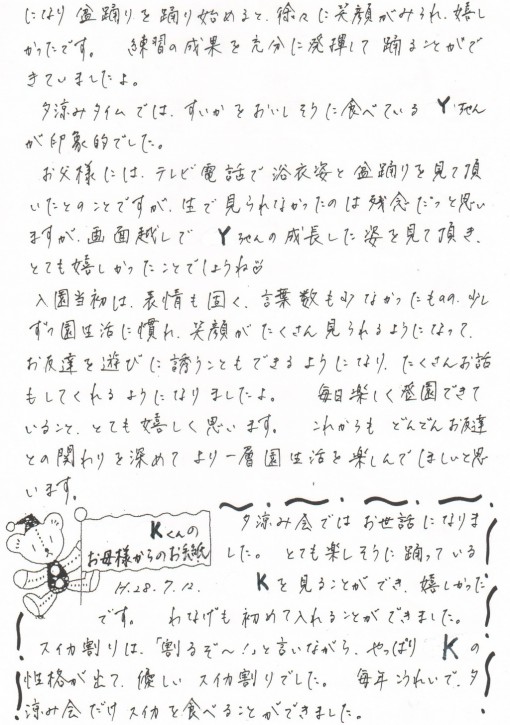 になり 盆踊りを踊り始めると、徐々に笑顔がみられ、嬉し
かったです。 練習の成果を充分に発揮して踊ることがで
きていましたよ。
夕涼みタイムでは、すいかをおいしそうに食べている Yちゃん
が印象的でした。
お父様には、テレビ電話で浴衣姿と盆踊りを見て頂
いたとのことですが、生で見られなかったのは残念だっと思い
ますが、画面越しで Yちゃんの成長した姿を見て頂き、
とても嬉しかったことでしょうね
入園当初は、表情も固く、言葉数も少なかったものの、少し
ずつ園生活に慣れ、笑顔がたくさん見られるようになって、
お友達を遊びに誘うこともできるようになり、たくさんお話
もしてくれるようになりましたよ。 毎日楽しく登園できて
いること、とても嬉しく思います。 これからも どんどんお友達
との関わりを深めて より一層園生活を楽しんでほしいと思
います。
Kくんの
お母様からのお手紙
H.28.7.12.
夕涼み会では お世話になりま
した。 とても楽しそうに踊っている
Kを見ることができ、嬉しかった
です。 わなげも初めて入れることができました。
スイカ割りは、「割るぞ〜!」と言いながら、やっぱり Kの
性格が出て、優しいスイカ割りでした。 毎年こうれいで、夕
涼み会だけスイカを食べることができました。